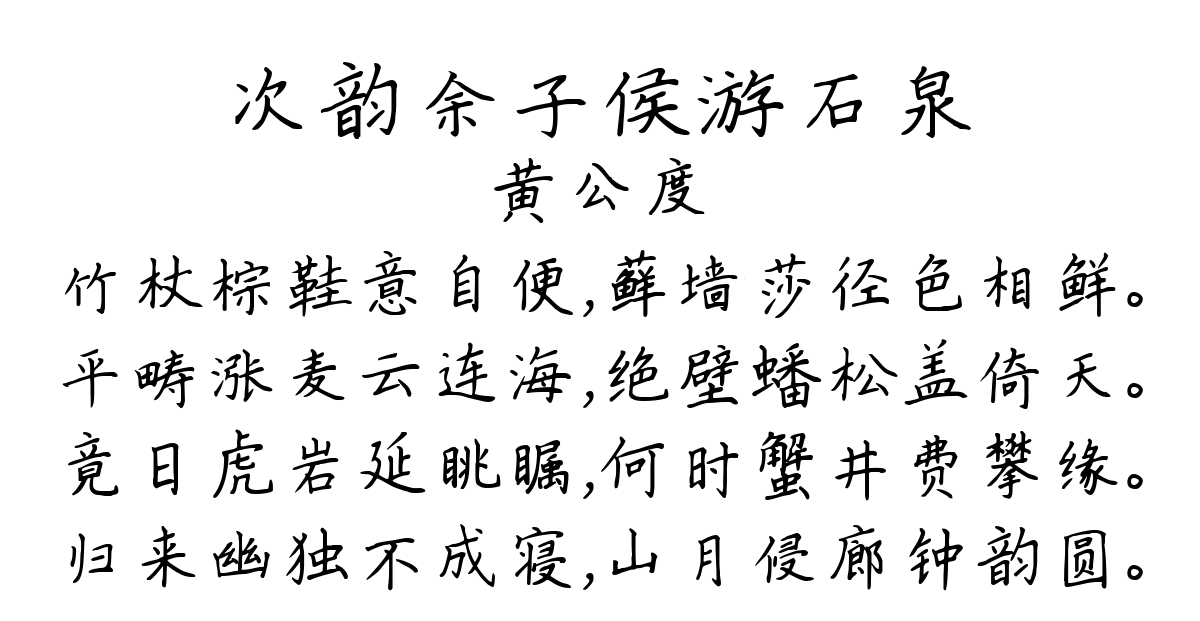 次韵余子侯游石泉
黄公度
竹杖棕鞋意自便,藓墙莎径色相鲜。
平畴涨麦云连海,绝壁蟠松盖倚天。
竟日虎岩延眺瞩,何时蟹井费攀缘。
归来幽独不成寝,山月侵廊钟韵圆。